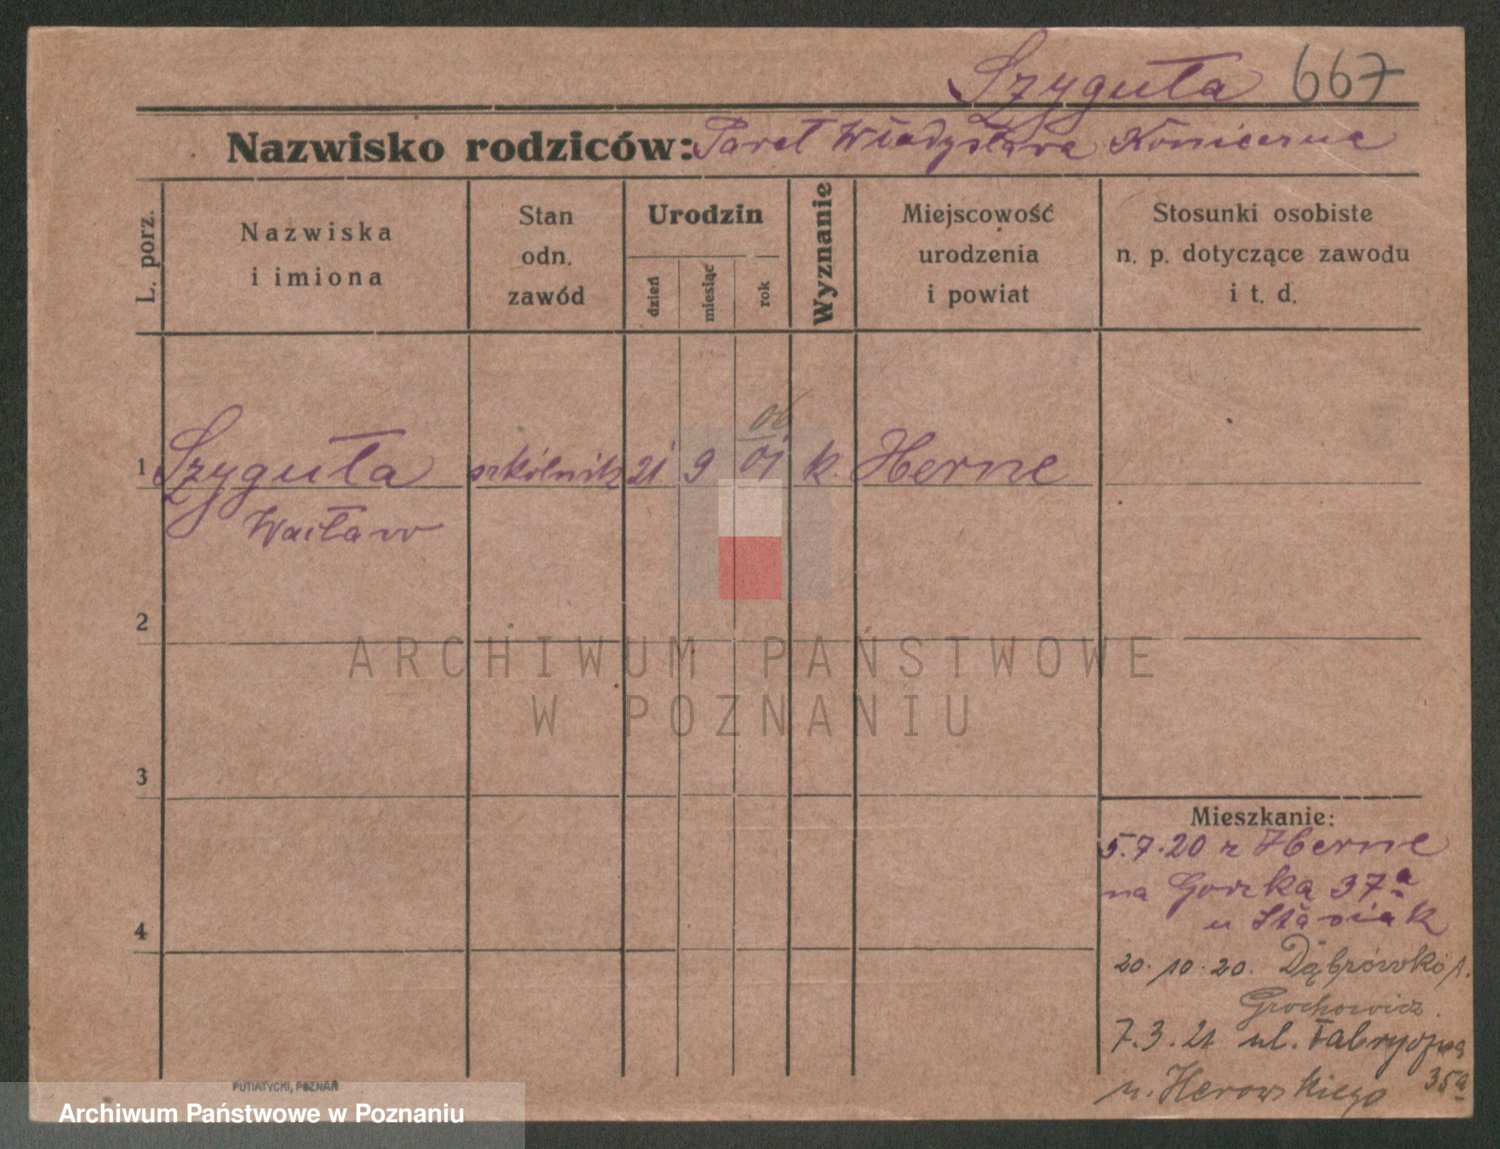 Szyguła 667
Nazwisko rodziców: Paweł Władysława Konieczne
L. porz.
Nazwiska
i imiona
Stan
odn.
zawód
Urodzin
dzień
miesiąc
rok
Wyznanie
Miejscowość
urodzenia
i powiat
Stosunki osobiste
n. p. dotyczące zawodu
i t. d.
06
1 Szyguła szkólnik 21 9 01 k. Herne
Wacław
2
3
4
Mieszkanie:
5.7.20 z Herne
na Gorką 37a
u Stasiak
20.10.20. Dąbrówki 1.
Grochowicz.
7.3.21 ul. Fabryczna
35a
u. Herowskiego
PUTIATYCKI, POZNAŃ
ARCHIWUM PAŃSTWOWE
W POZNANIU
Archiwum Państwowe w Poznaniu